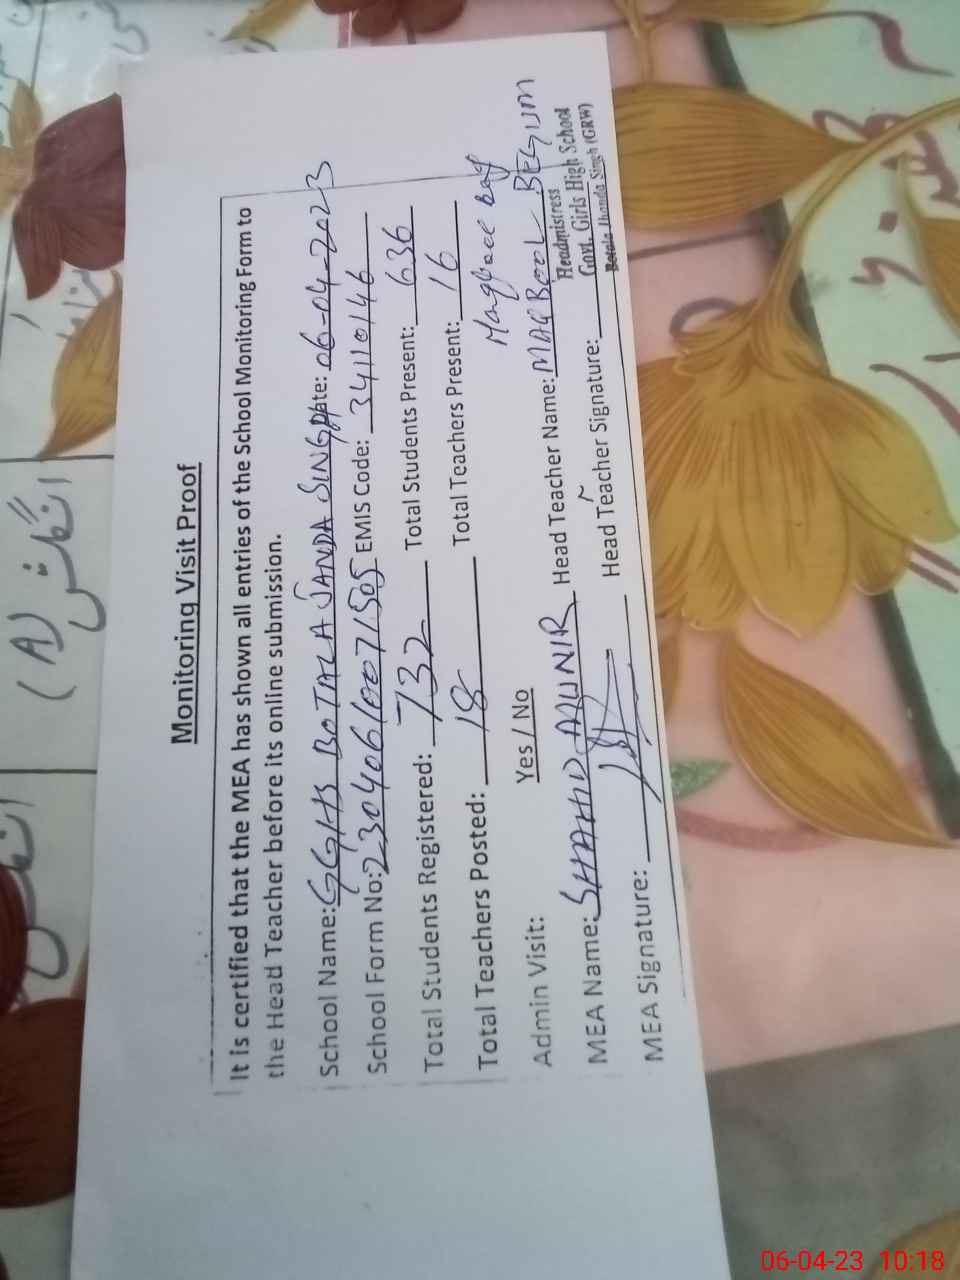 Monitoring Visit Proof
It is certified that the MEA has shown all entries of the School Monitoring Form to
the Head Teacher before its online submission.
School Name: GGHS BOTALA JANDA SINGH Date: 06-04-2023
School Form No: 23040610071505 EMIS Code: 34110146
Total Students Registered: 732 Total Students Present: 636
Total Teachers Posted: 18 Total Teachers Present: 16
Admin Visit: Yes / No
MEA Name: SHAHID MUNIR Head Teacher Name: MAQBOOL BEGUM
MEA Signature: Head Teacher Signature:
Headmistress
Govt. Girls High School
Botala Jhanda Singh (GRW)
انگلش (A)
06-04-23 10:18